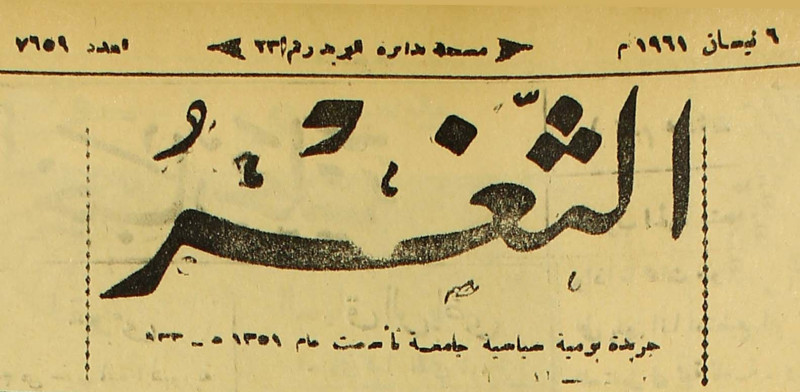 ٦ نيسان ١٩٦١ م مسجلة بدائرة البريد رقم ٢٣ العدد ٧٦٥٩
الثَّغْر
جريدة يومية سياسية جامعة تأسست عام ١٣٥١ ه